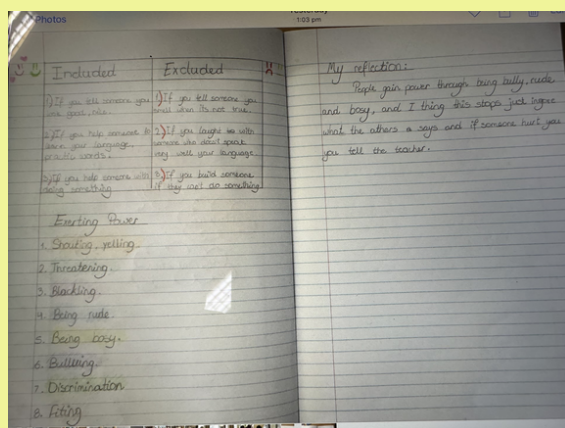 Photos
Yesterday
1:03 pm
Included
Excluded
1) If you tell someone you
look good, nice.
1) If you tell someone you
smell when its not true.
2) If you help someone to
learn your language,
practis words.
2) If you laught with
someone who dosn't speak
very well your language.
3) If you help someone with
doing something
3) If you build someone
if they won't do something
Exerting Power
1. Shouting, yelling.
2. Threatening.
3. Blackling.
4. Being rude.
5. Being bosy.
6. Bulliring.
7. Discrimination
8. Fiting
My reflection:
People gain power through being bully, rude
and bosy, and I thing this stops just ingore
what the others says and if someone hurt you
you tell the teacher.